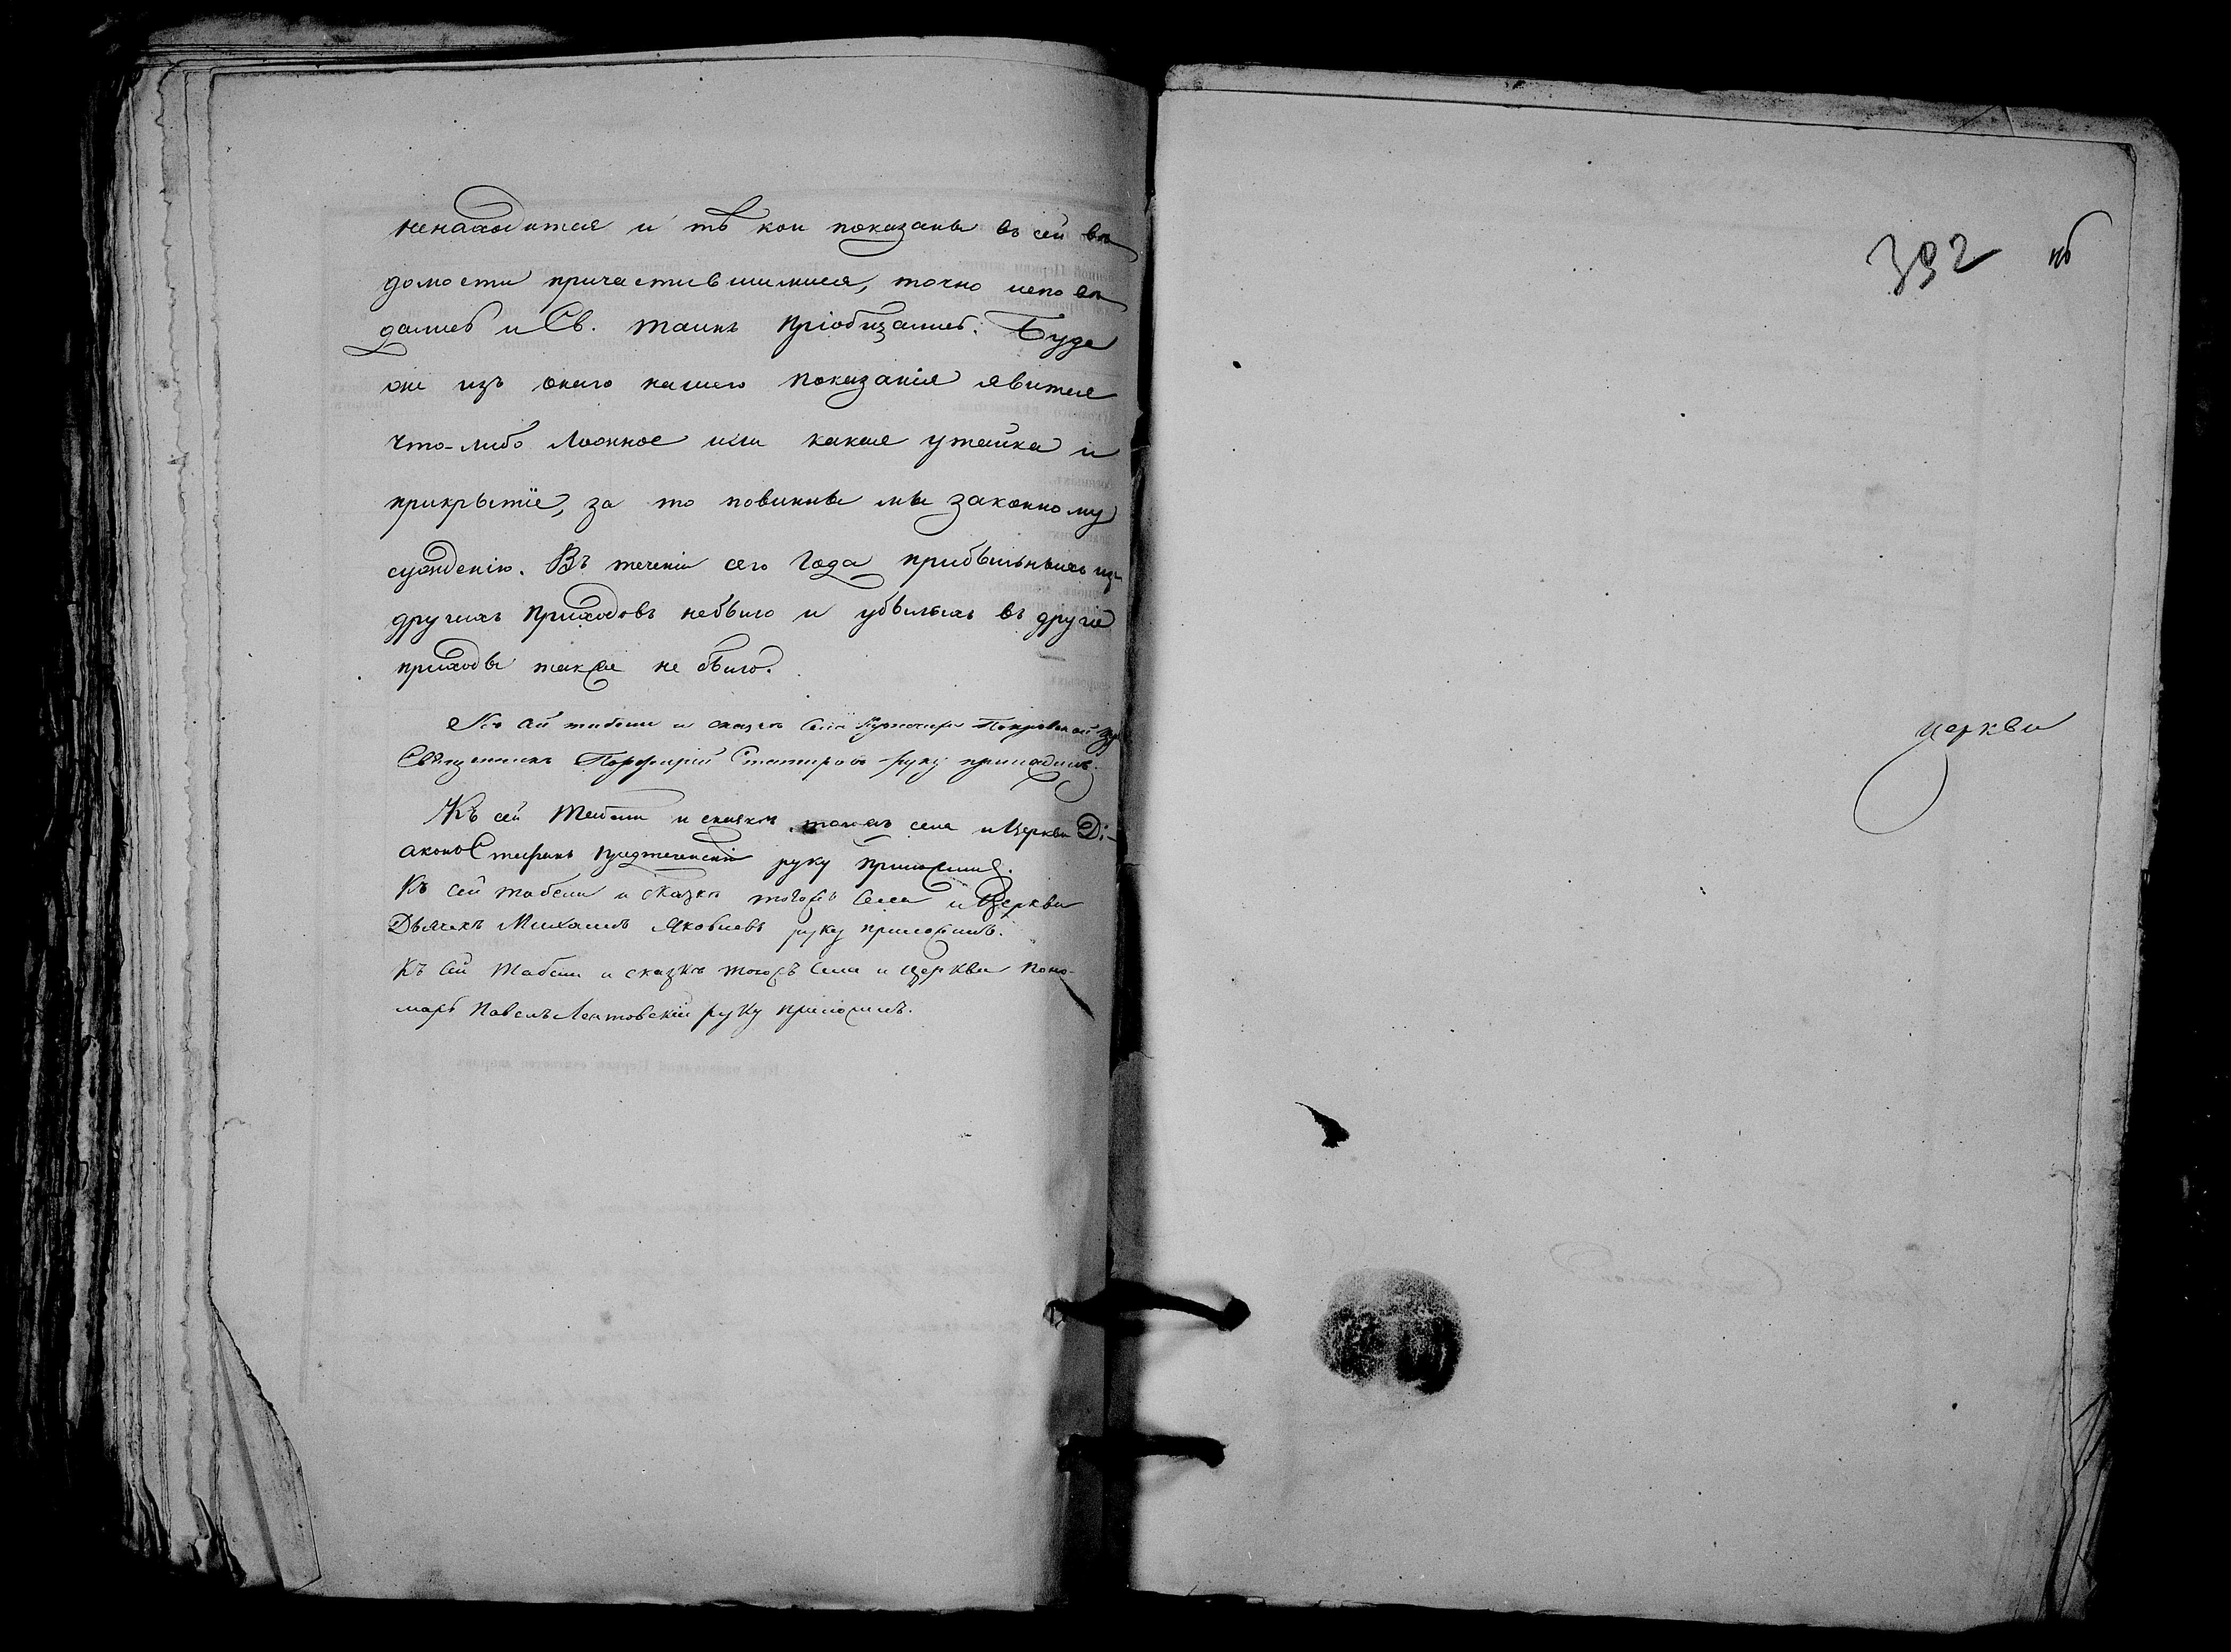 ненаходится и тѣ кои показаны въ сей вѣ
домости причастившимися, точно исповѣ
дались и Св. таинъ пріобщались. Буде
же изъ онаго нашего показанія явится
что-либо ложное или какая утайка и
прикрытіе, за то повинны мы законному
сужденію. Въ теченіи сего года прибыльныхъ изъ
другихъ приходовъ небыло и убылыхъ въ другіе
приходы также не было.
Къ сей табели и сказкѣ села Покровской
Священникъ Порфирій руку приложилъ.
Къ сей табели и сказкѣ тогожъ села и Церкви Ді-
аконъ Стефанъ Предтеченскій руку приложилъ.
Къ сей табели и сказкѣ тогожъ села и Церкви
Дьячекъ Михаилъ Яковлевъ руку приложилъ.
Къ сей табели и сказкѣ тогожъ села и церкви поно-
марь Павелъ руку приложилъ.
392
церкви